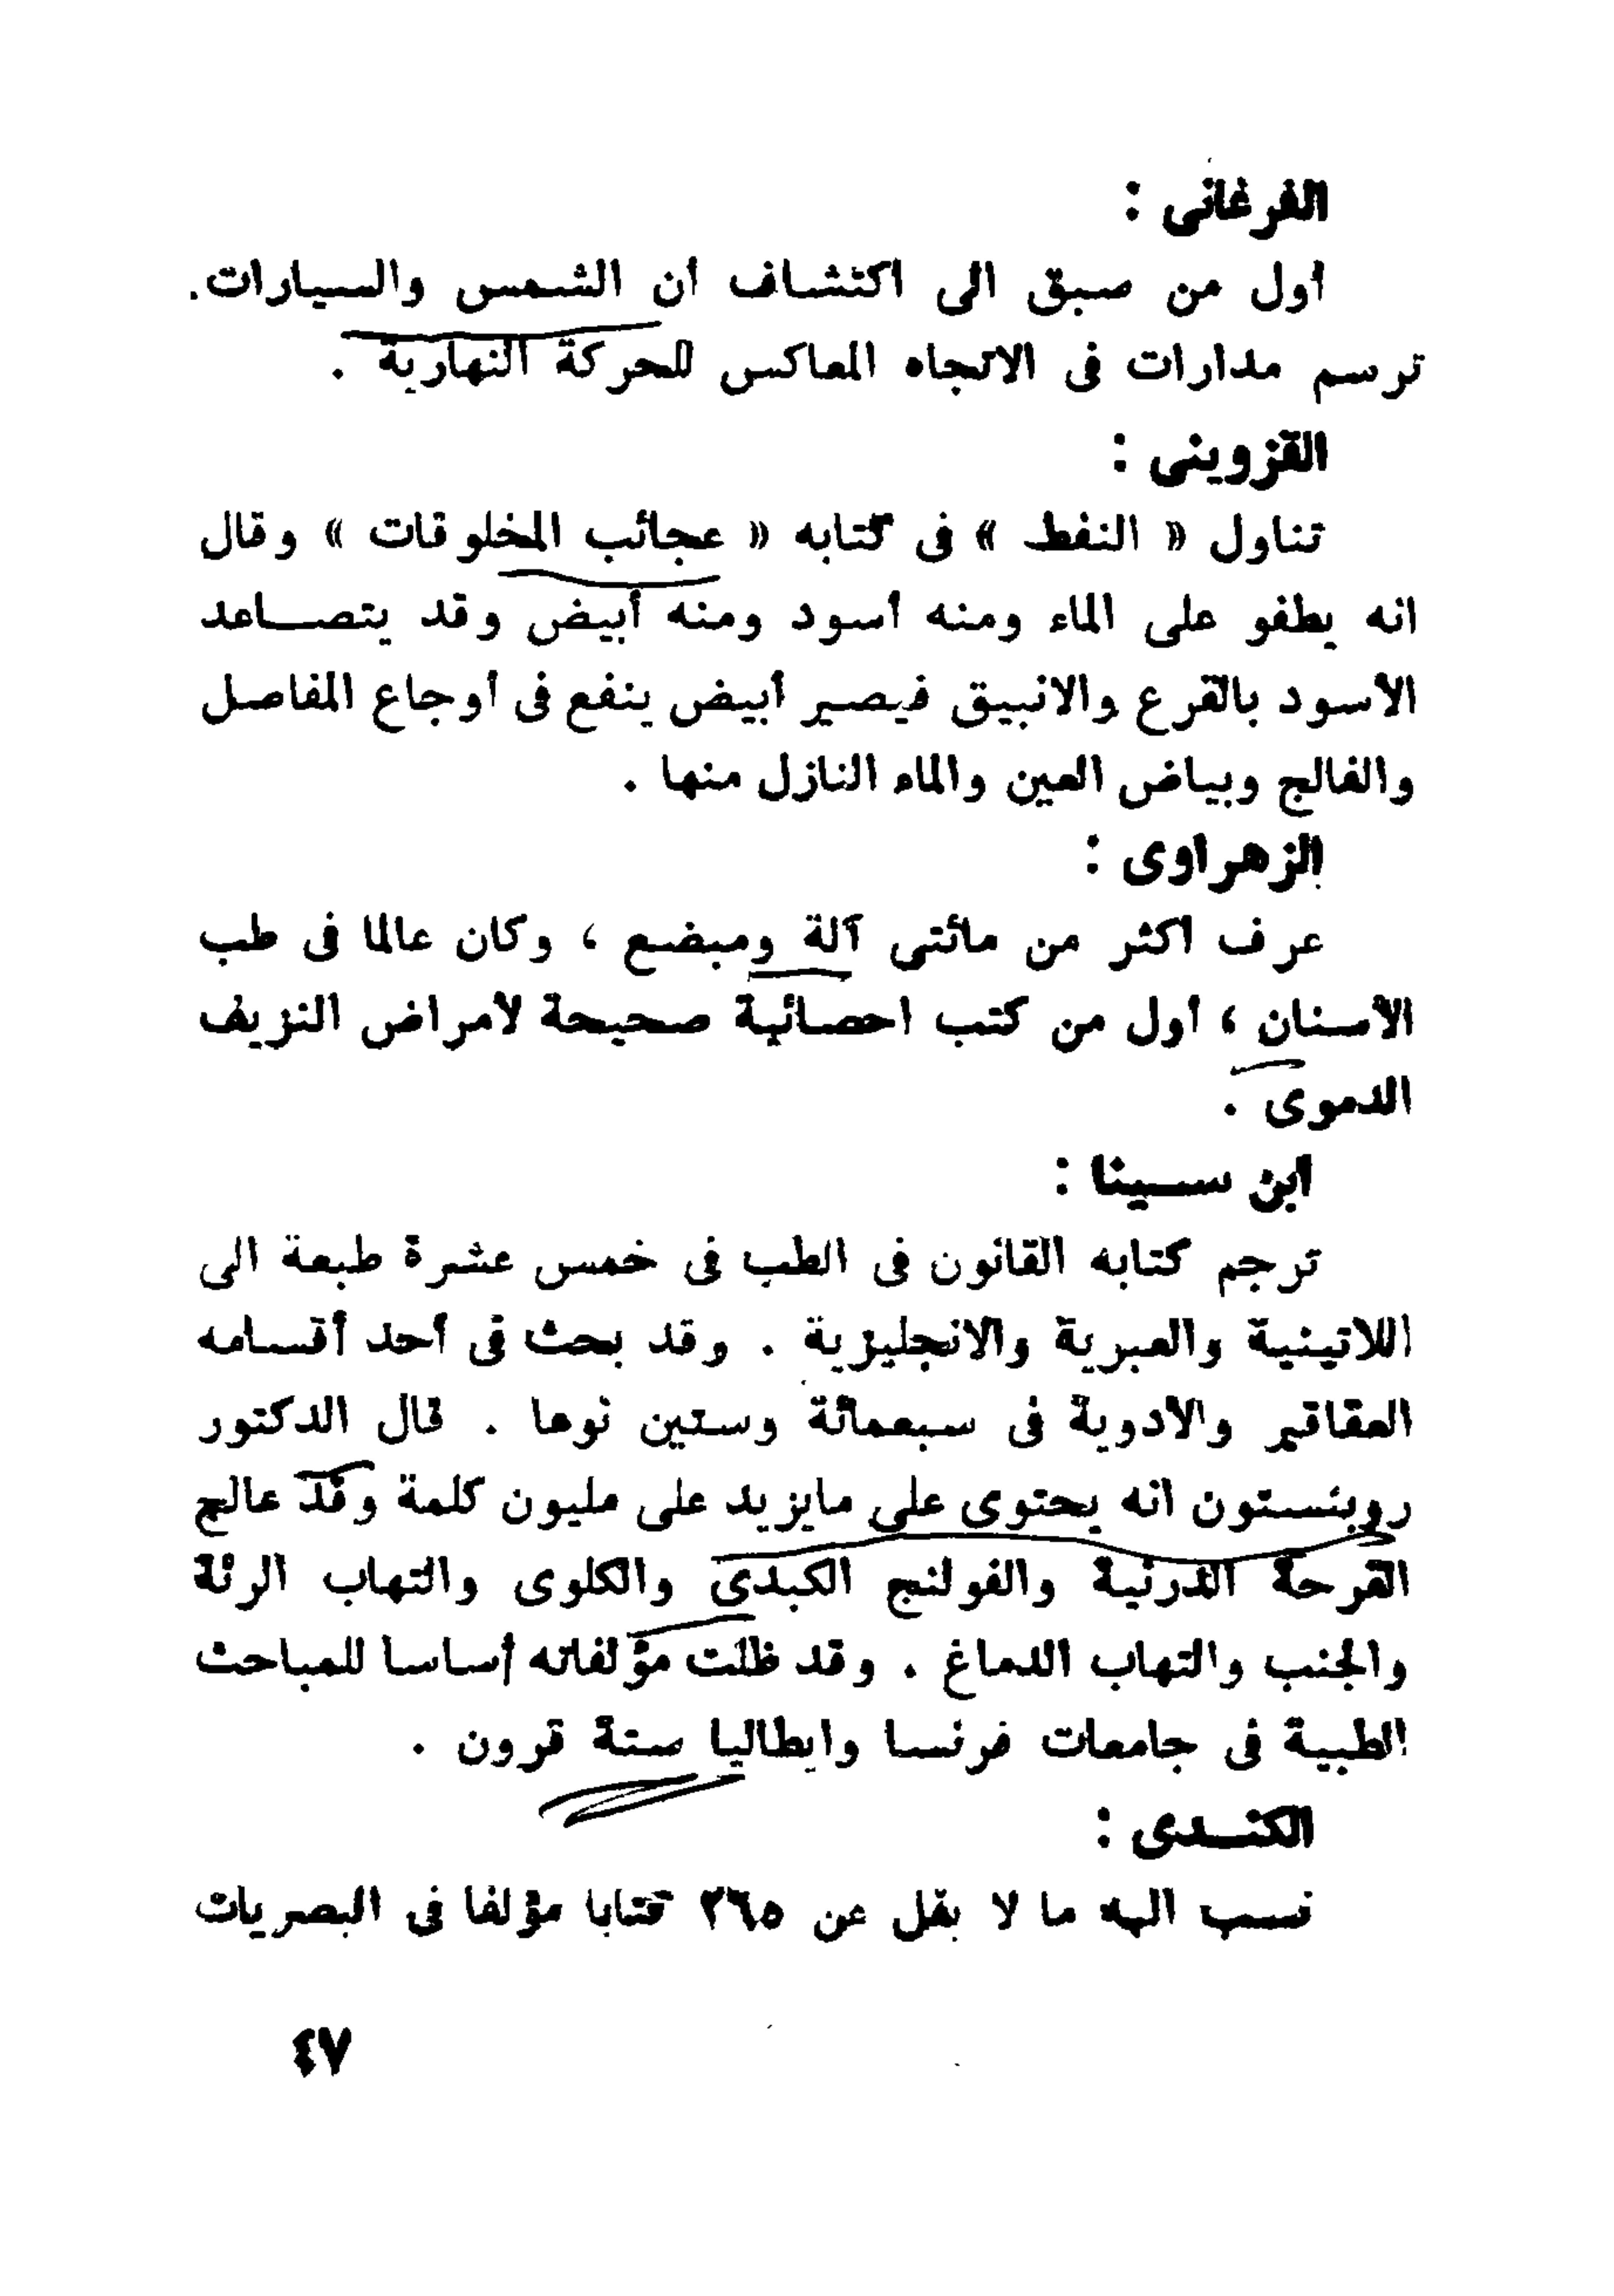 الفرغانى :
أول من سبق الى اكتشاف أن الشمس والسيارات.
ترسم مدارات فى الاتجاه المعاكس للحركة النهارية .
القزوينى :
تناول « النفط » فى كتابه « عجائب المخلوقات » وقال
انه يطفو على الماء ومنه أسود ومنه أبيض وقد يتصاعد
الأسود بالقرع والانبيق فيصير أبيض ينفع فى أوجاع المفاصل
والفالج وبياض العين والماء النازل منها .
الزهراوى :
عرف أكثر من مائتى آلة ومبضع ، وكان عالما فى طب
الأسنان ، أول من كتب احصائية صحيحة لأمراض النزيف
الدموى .
ابن سينا :
ترجم كتابه القانون فى الطب فى خمس عشرة طبعة الى
اللاتينية والعبرية والانجليزية . وقد بحث فى أحد أقسامه
العقاقير والأدوية فى سبعمائة وستين نوعا . قال الدكتور
روبنستون انه يحتوى على مايزيد على مليون كلمة وقد عالج
القرحة الدرنية والقولنج الكبدى والكلوى والتهاب الرئة
والجنب والتهاب الدماغ . وقد ظلت مؤلفاته أساسا للمباحث
الطبية فى جامعات فرنسا وايطاليا ستة قرون .
الكندى :
نسب اليه ما لا يقل عن ٢٦٥ كتابا مؤلفا فى البصريات
٤٧